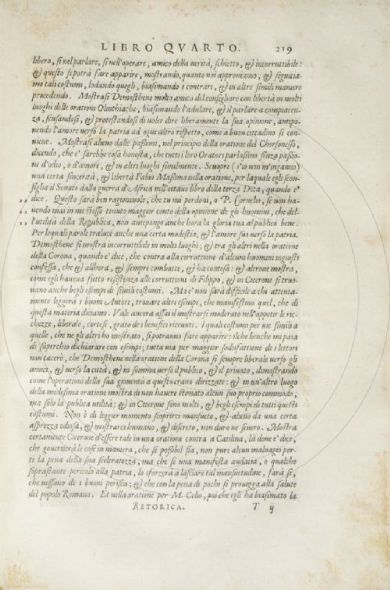 LIBRO QVARTO. 219
libero, sì nel parlare, sì nell'operare, amico della verità, schietto, & incorruttibile:
& questo si potrà fare apparire, mostrando, quanto noi approviamo, & seguitia-
mo tai costumi, lodando quegli, biasimando i contrari, & in altre simili maniere
procedendo. Mostrasi Demosthene molto amico del consigliare con libertà in molti
luoghi delle orationi Olinthiache, biasimando l'adulare, & il parlare a compiacen-
za, scusandosi, & protestandosi di voler dire liberamente la sua opinione, antipo-
nendo l'amore verso la patria ad ogni altro rispetto, come a buon cittadino si con-
viene. Mostrasi alieno dalle passioni, nel principio della oratione del Chersoneso,
dicendo, che e' sarebbe cosa honesta, che tutti i loro Oratori parlassino senza passio-
ne d'odio, o d'amore, & in altri luoghi similmente. Scuopre (s'io non m'inganno)
una certa sincerità, & libertà Fabio Massimo nella oratione, per la quale egli scon-
siglia il Senato dalla guerra d'Africa nell'ottavo libro della terza Deca, quando e'
dice. Questo sarà ben ragionevole, che tu mi perdoni, o P. Cornelio, se non ha-
vendo mai in me stesso tenuto maggior conto della opinione de gli huomini, che del-
l'utilità della Republica, non antepongo anche hora la gloria tua al publico bene.
Per le quali parole traluce anche una certa modestia, & l'amore suo verso la patria.
Demosthene si mostra incorruttibile in molti luoghi; & tra gli altri nella oratione
della Corona, quando e' dice, che contra alla corruttione d'alcuni huomini ingiusti
& allhora, & sempre combatte, & ha contesa: & altrove mostra,
come egli haveva fatto resistenza alle corruttioni di Filippo, & in Cicerone si truo-
vano anche begli esempi di simili costumi. Ma e' non sarà difficile a chi attenta-
mente leggerà i buoni Autori, trovare altri esempi, che manifestino quel, che di
questa materia diciamo. Vale ancora assai il mostrarsi moderato nell'appetir le ric-
chezze, liberale, cortese, grato de i benefici ricevuti. I quali costumi per vie simili a
quelle, che ne gli altri ho mostrato, si potranno fare apparire: il che benche mi paia
di superchio dichiarare con esempi; tutta via per maggior sodisfattione de i lettori
non tacerò, che Demosthene nella oratione della Corona si scuopre liberale verso gli
amici, & verso la città, & in somma verso il publico, & il privato, dimostrando
come l'operationi della sua gioventù a questo erano dirizzate: & in un'altro luogo
della medesima oratione mostra di non havere stimato alcun suo proprio commodo,
ma solo la publica utilità; & in Cicerone sono molti, & begli esempi di tutti questi
costumi. Non è di leggier momento scoprirsi mansueto, & alieno da una certa
asprezza odiosa, & mostrarsi humano, & discreto, non duro ne severo. Mostra
certamente Cicerone d'essere tale in una oratione contra a Catilina, là dove e' dice,
che governerà le cose in maniera, che se possibil sia, non pure alcun malvagio por-
ti la pena della sua sceleratezza, ma che se una manifesta audacia, o qualche
soprastante pericolo alla patria, lo sforzerà a lasciare tal mansuetudine, farà sì,
che nessuno de i buoni perisca; & che con la pena di pochi si provegga alla salute
del popolo Romano. Et nella oratione per M. Celio, poi che egli ha biasimato la
RETORICA. T ij